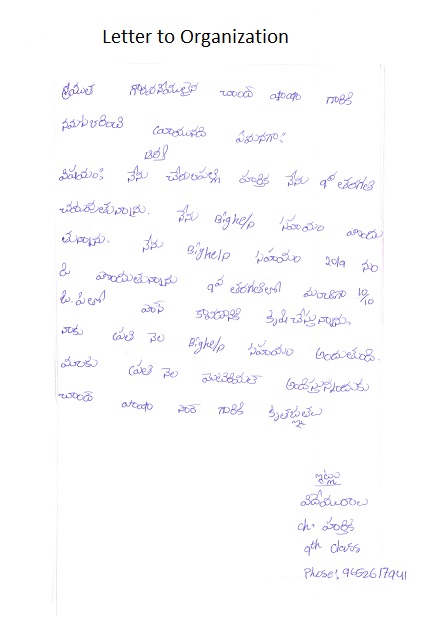 Letter to Organization
శ్రీయుత గౌరవనీయులైన చాంద్ పాషా గారికి
నమస్కరించి వ్రాయునది ఏమనగా!
విషయం: నేను చేరుపల్లి హారిక నేను 9వ తరగతి
చదువుతున్నాను. నేను Bighelp సహాయం పొందు
తున్నాను. నేను Bighelp సహాయం 2019 నుం
డి పొందుతున్నాను 9వ తరగతిలో మంచిగా 10/10
జి.పి.లో పాస్ కావడానికి కృషి చేస్తున్నాను.
నాకు ప్రతి నెల Bighelp సహాయం అందుతుంది.
మాకు ప్రతి నెల మెటీరియల్ అందిస్తున్నందుకు
చాంద్ పాషా సార్ గారికి కృతజ్ఞతలు
ఇట్లు
విధేయురాలు
ch. హారిక
9th class